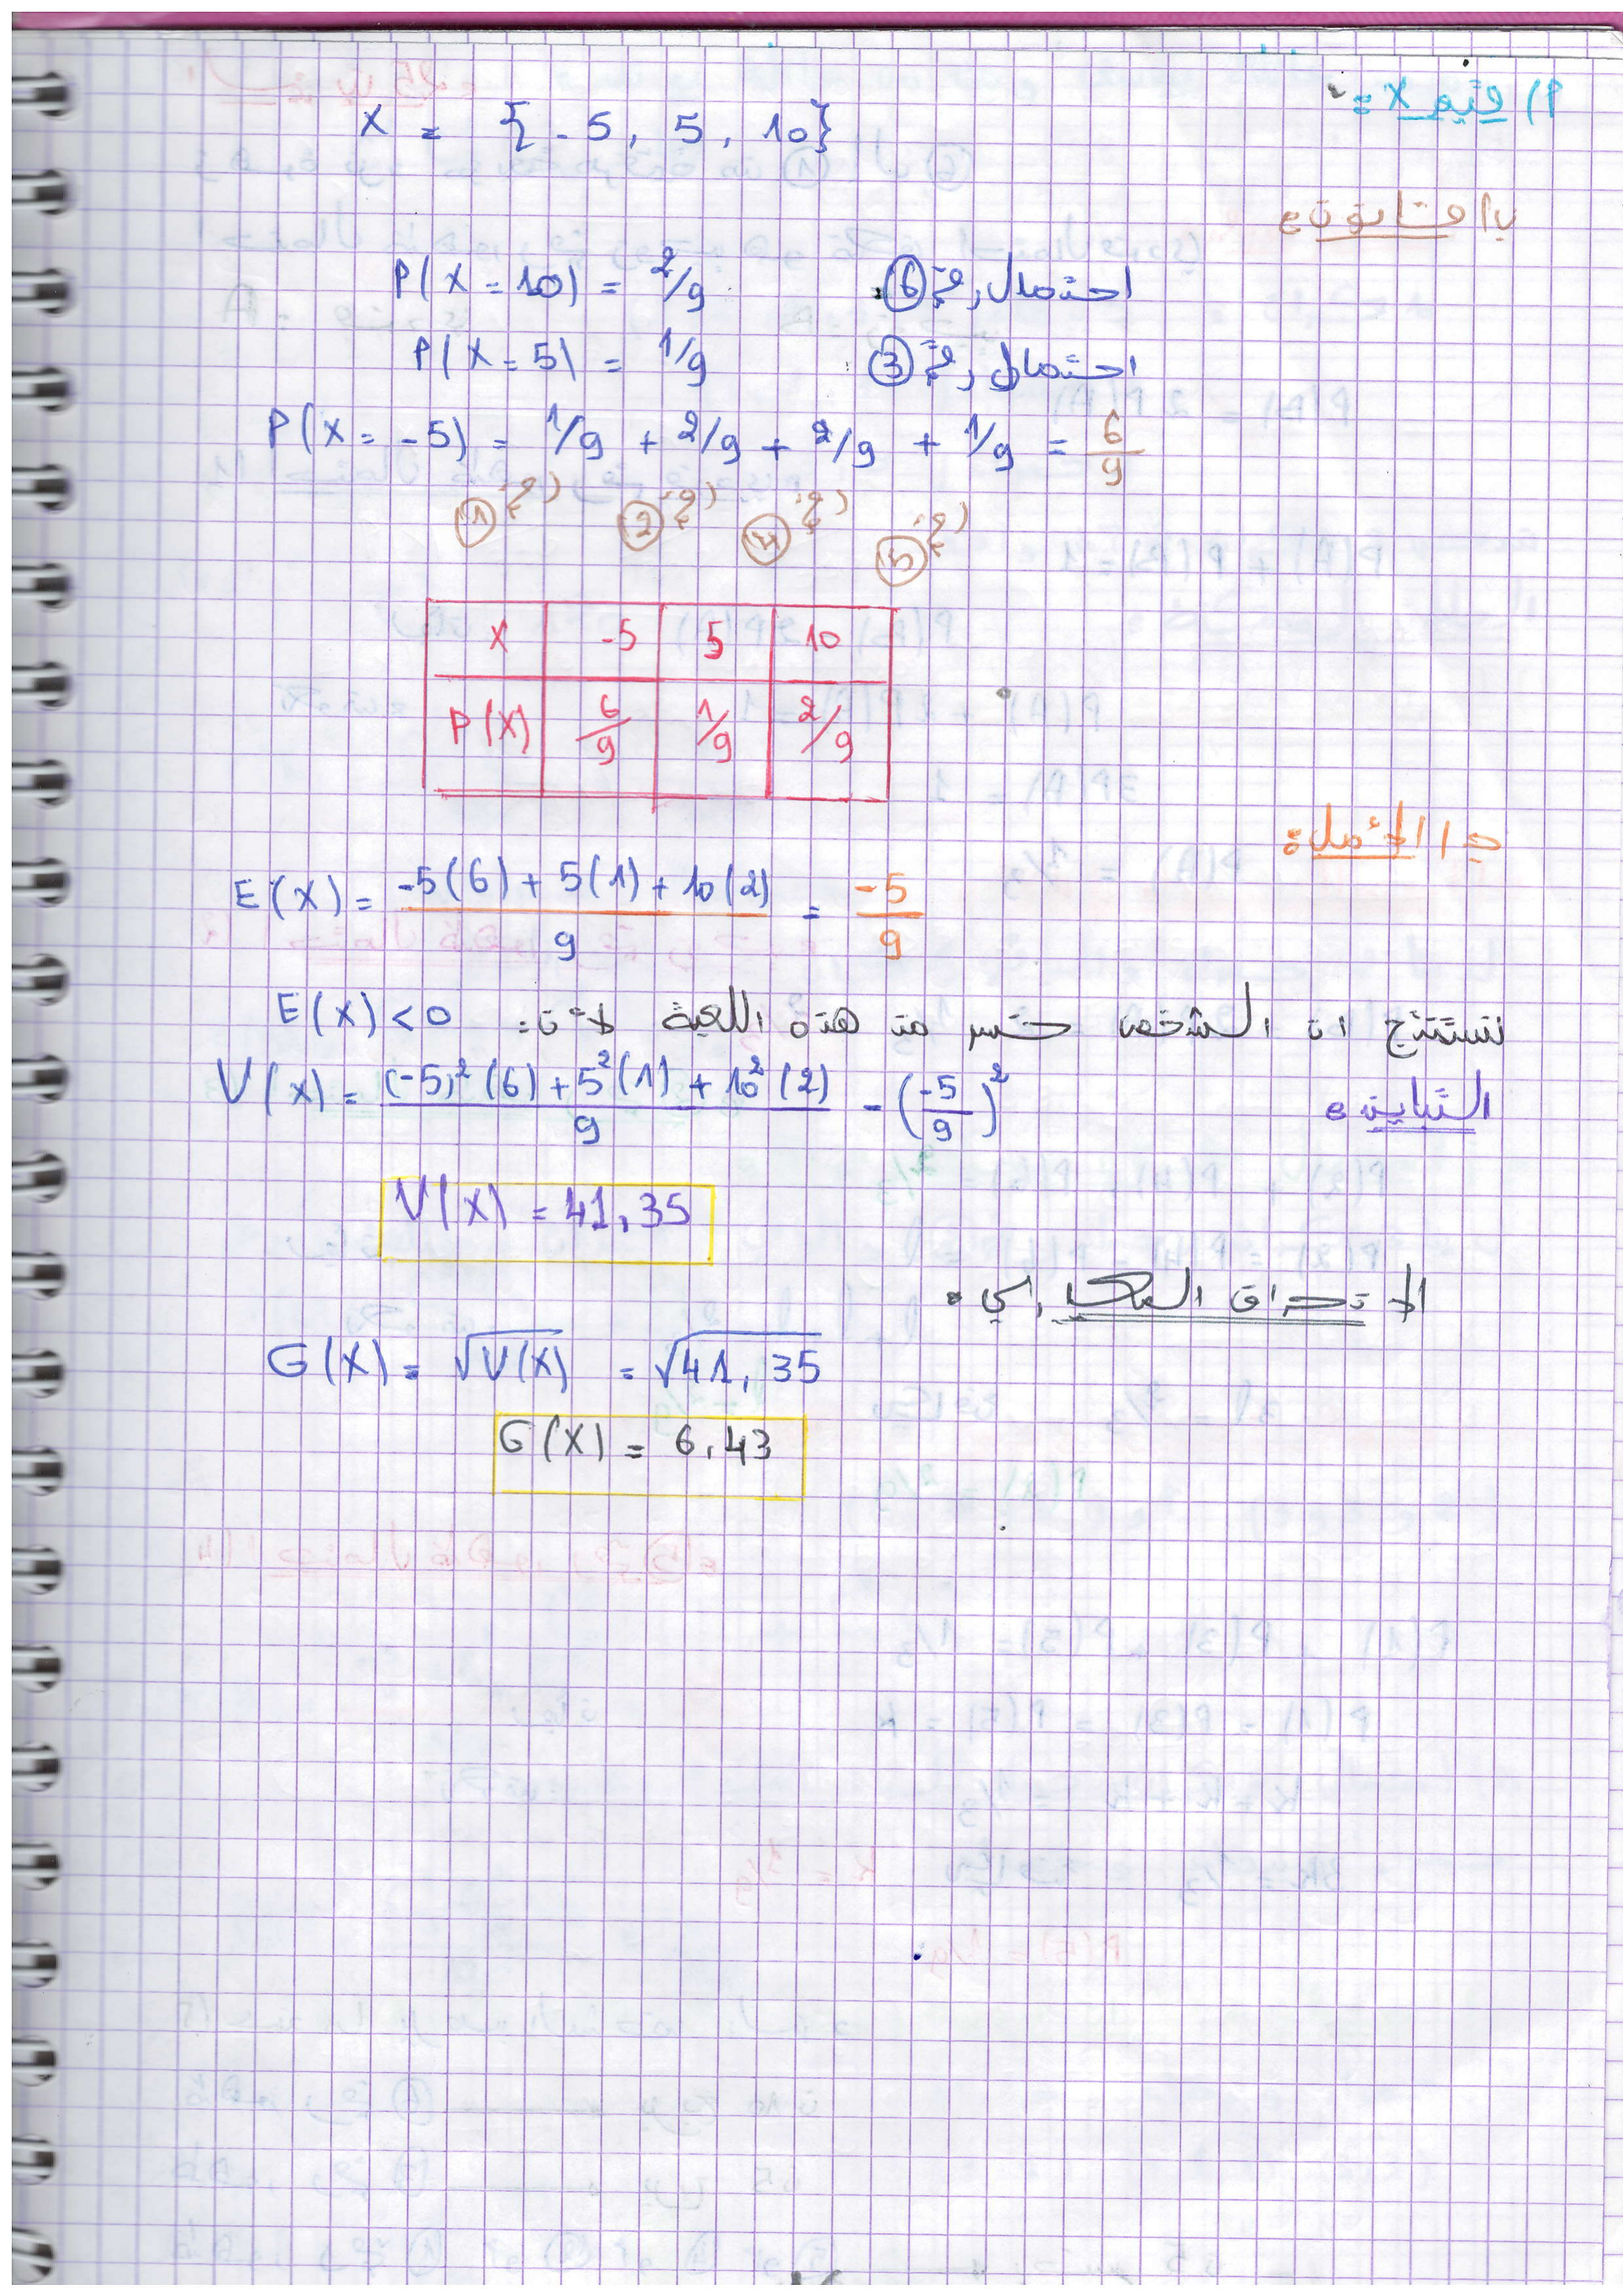 أ) قيم X :
X = {-5, 5, 10}
ب) قانون :
P(X=10) = 2/9 احتمال رقم 6
P(X=5) = 1/9 احتمال رقم 3
P(X=-5) = 1/9 + 2/9 + 2/9 + 1/9 = 6/9
رقم 1 رقم 2 رقم 4 رقم 5
X -5 5 10
P(X) 6/9 1/9 2/9
ج) الأمل :
E(X) = (-5(6) + 5(1) + 10(2))/9 = -5/9
نستنتج ان الشخص خسر من هذه اللعبة لأن: E(X) < 0
التباين :
V(X) = ((-5)²(6) + 5²(1) + 10²(2))/9 - (-5/9)²
V(X) = 41,35
G(X) = √V(X) = √41,35
G(X) = 6,43